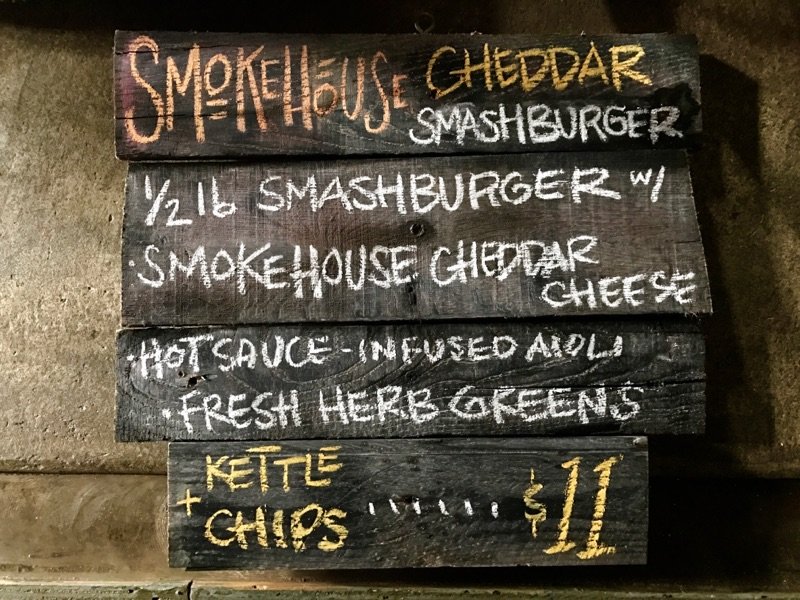 SMOKEHOUSE CHEDDAR
SMASHBURGER
1/2 lb SMASHBURGER w/
·SMOKEHOUSE CHEDDAR
CHEESE
·HOT SAUCE-INFUSED AIOLI
·FRESH HERB GREENS
+ KETTLE
CHIPS ...... $11